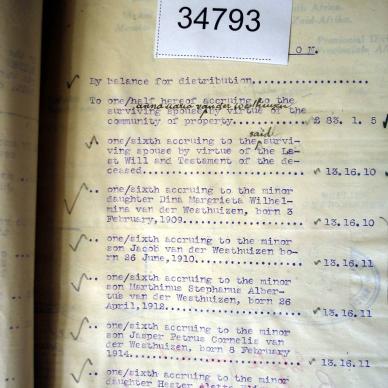 34793
ON.
By balance for distribution
To one/half hereof accruing to the
anna maria van der Westhuizen
surviving spouse by virtue of the
community of property. £ 83. 1. 5
said
one/sixth accruing to the survi-
ving spouse by virtue of the La-
st Will and Testament of the de-
ceased. 13.16.10
one/sixth accruing to the minor
daughter Dina Margrieta Wilhel-
mina van der Westhuizen, born 3
February,1909. 13.16.10
one/sixth accruing to the minor
son Jacob van der Westhuizen bo-
rn 26 June,1910. 13.16.11
one/sixth accruing to the minor
son Marthinus Stephanus Alber-
tus van der Westhuizen, born 26
April,1912. 13.16.11
one/sixth accruing to the minor
son Jasper Petrus Cornelis van
der Westhuizen, born 8 February
1914. 13.16.11
one/sixth accruing to the minor
daughter Hester